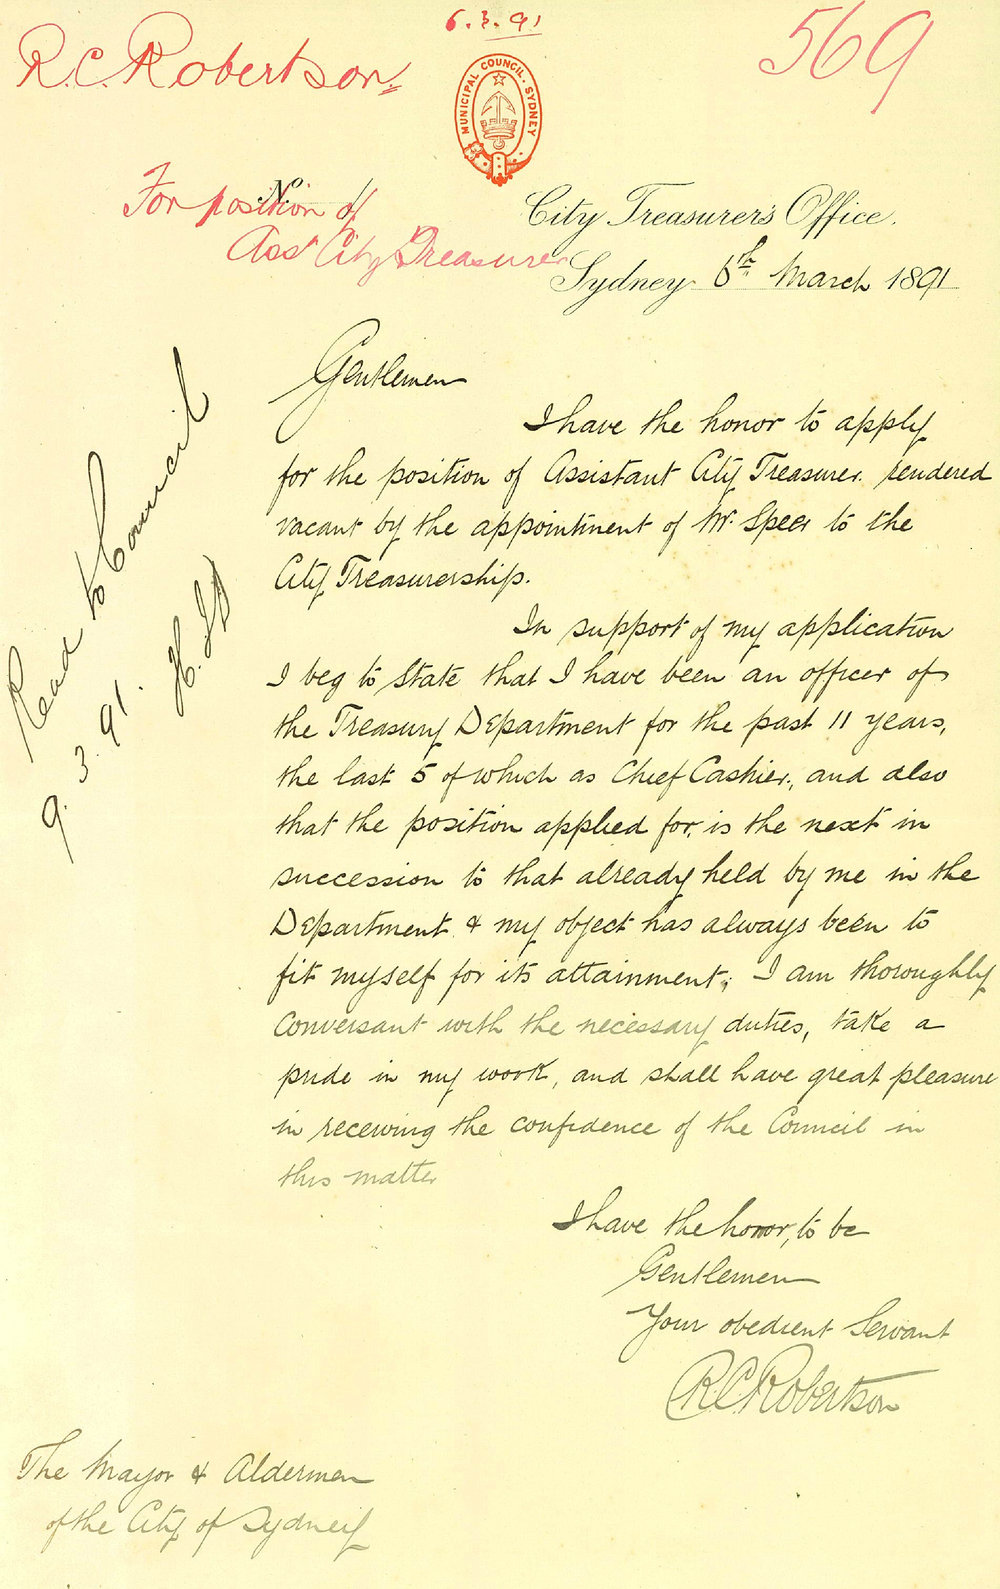 6.3.91
R.C. Robertson
569
MUNICIPAL COUNCIL. SYDNEY
No.
For position of
Asst City Treasurer
City Treasurer's Office.
Sydney 6th March 1891
Read to Council
9.3.91.
Gentlemen
I have the honor to apply
for the position of Assistant City Treasurer. rendered
vacant by the appointment of Mr. Speer to the
City Treasurership.
In support of my application
I beg to State that I have been an officer of
the Treasury Department for the past 11 years,
the last 5 of which as Chief Cashier, and also
that the position applied for, is the next in
succession to that already held by me in the
Department & my object has always been to
fit myself for its attainment; I am thoroughly
conversant with the necessary duties, take a
pride in my work, and shall have great pleasure
in receiving the confidence of the Council in
this matter
I have the honor, to be
Gentlemen
Your obedient Servant
R.C. Robertson
The Mayor & Aldermen
of the City of Sydney